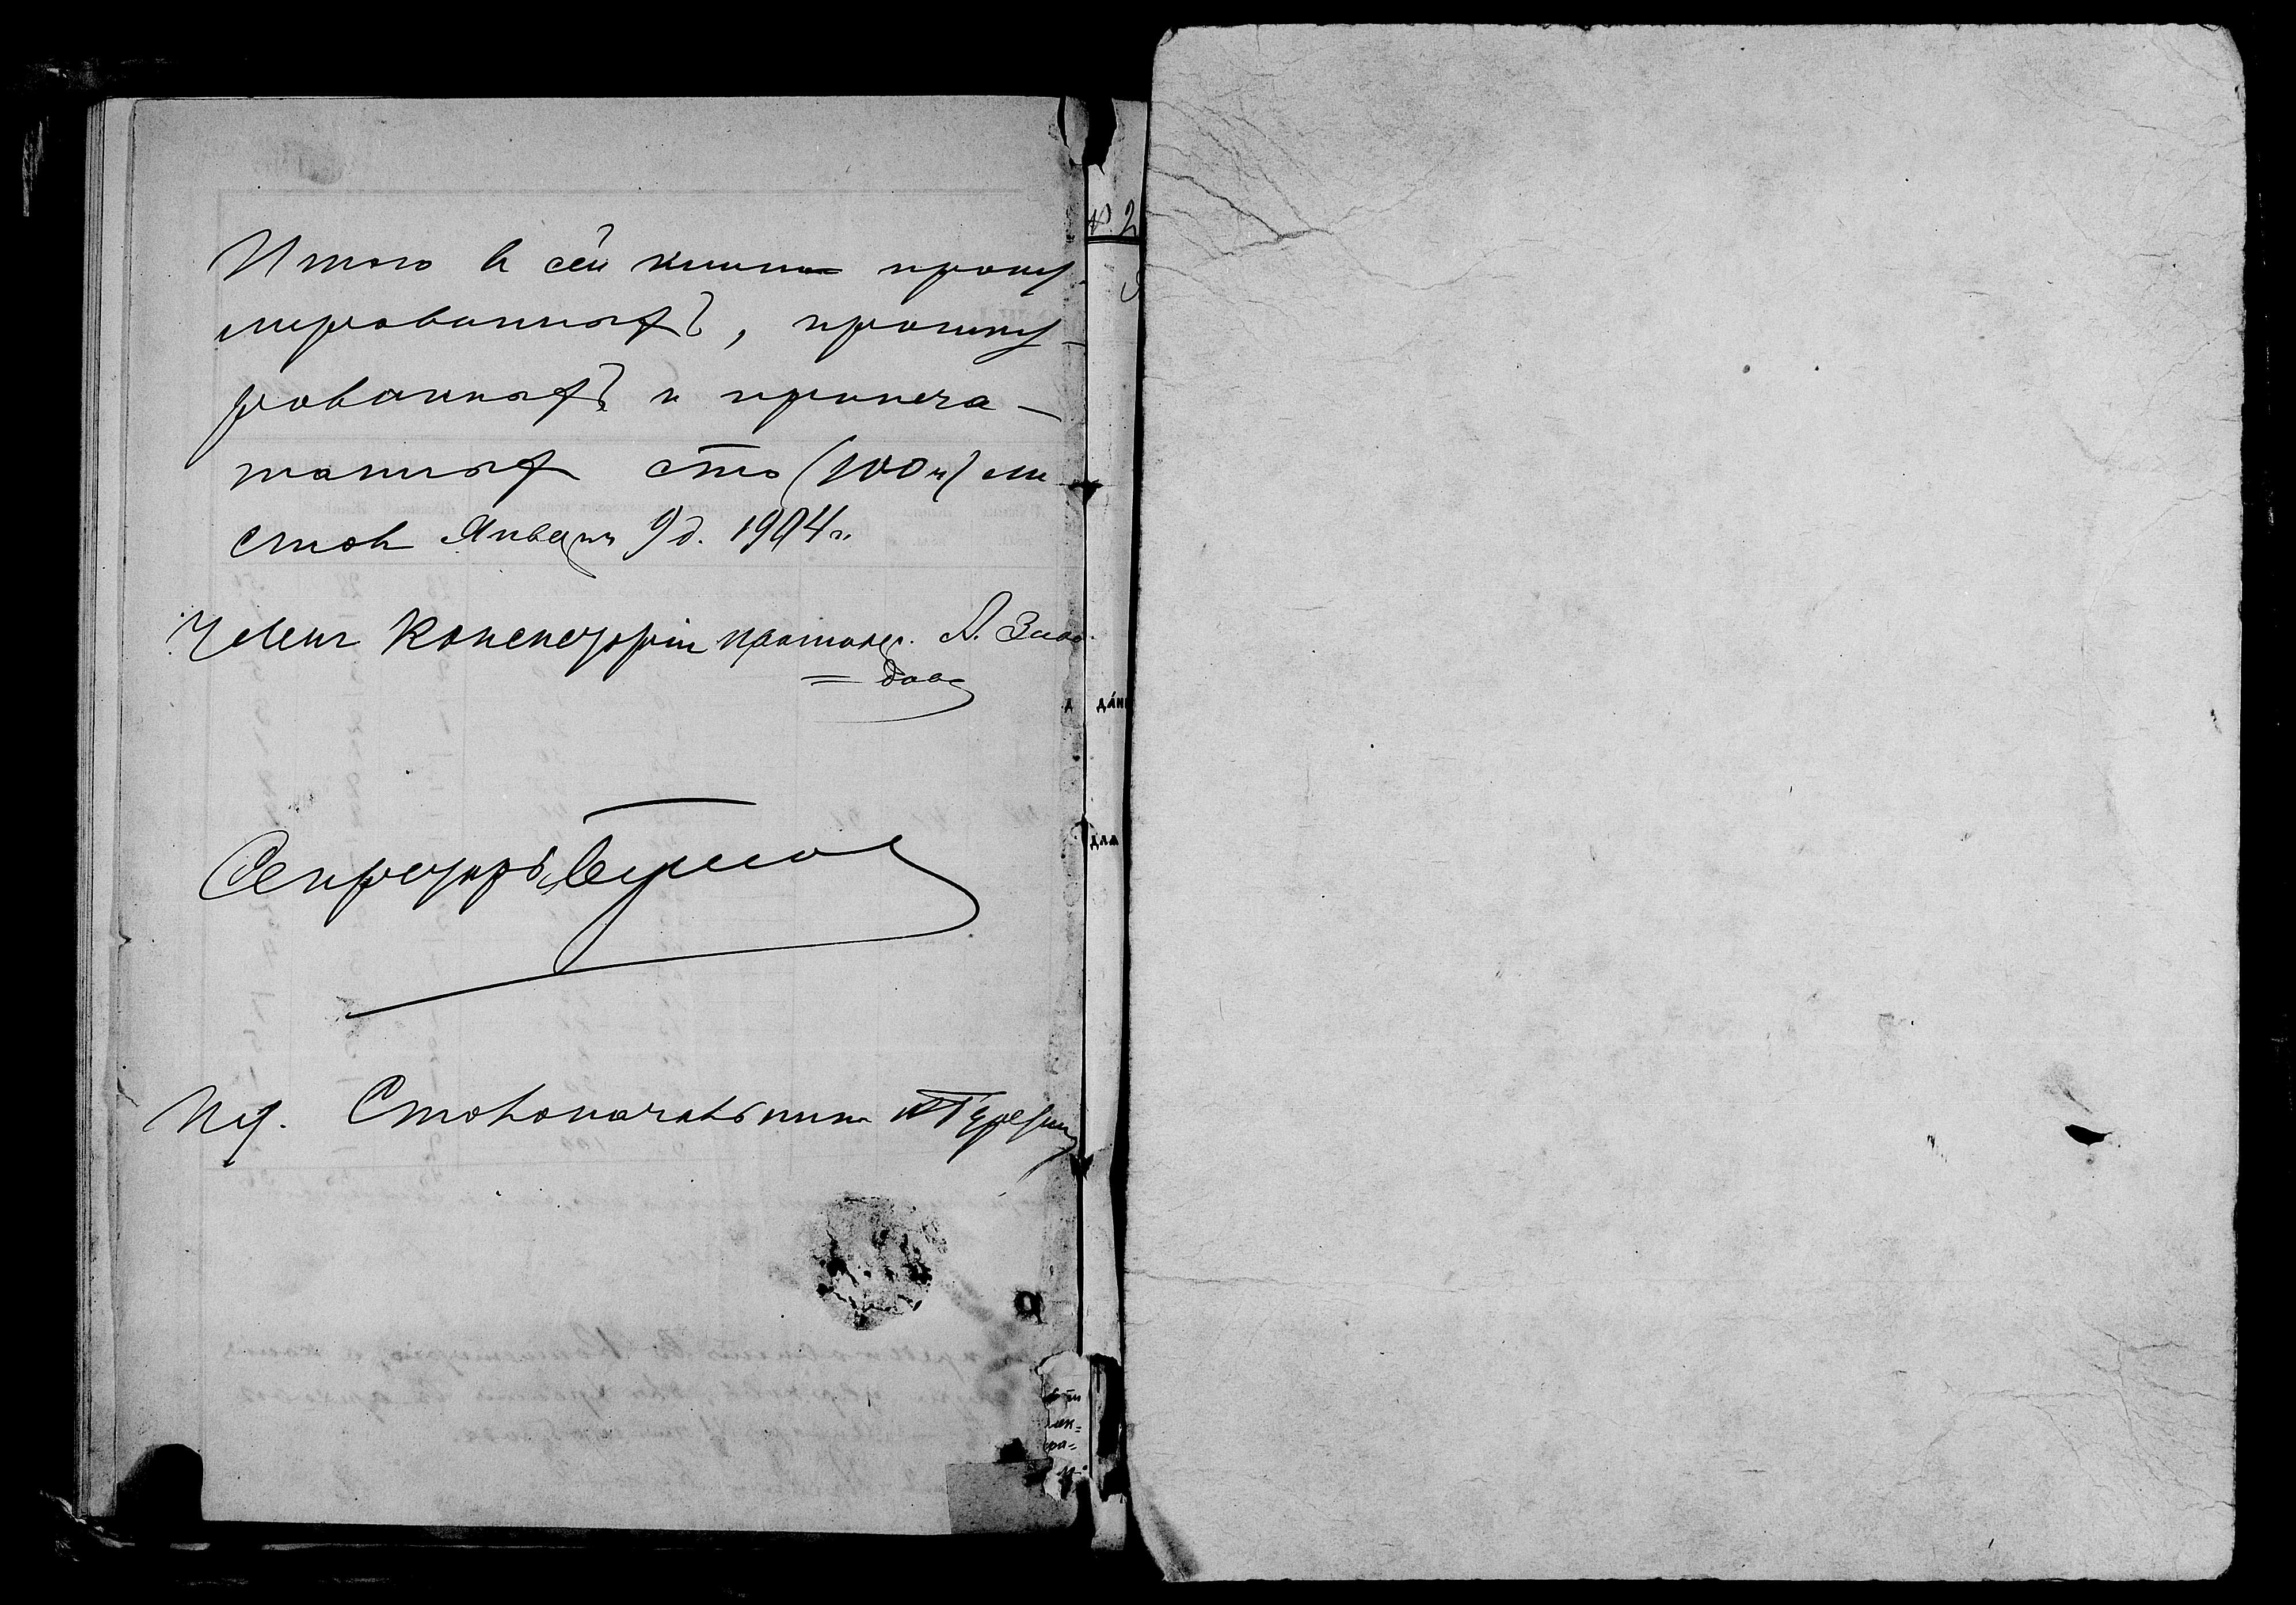 Итого в сей книге прону-
мерованныхъ, прошну-
рованныхъ и припеча-
танных сто (100 ч) ли
стов Января 9 д. 1904 г.
Членъ Консисторіи протоіер. А.
Секретарь
Ид. Столоначальника
№ 2
дла